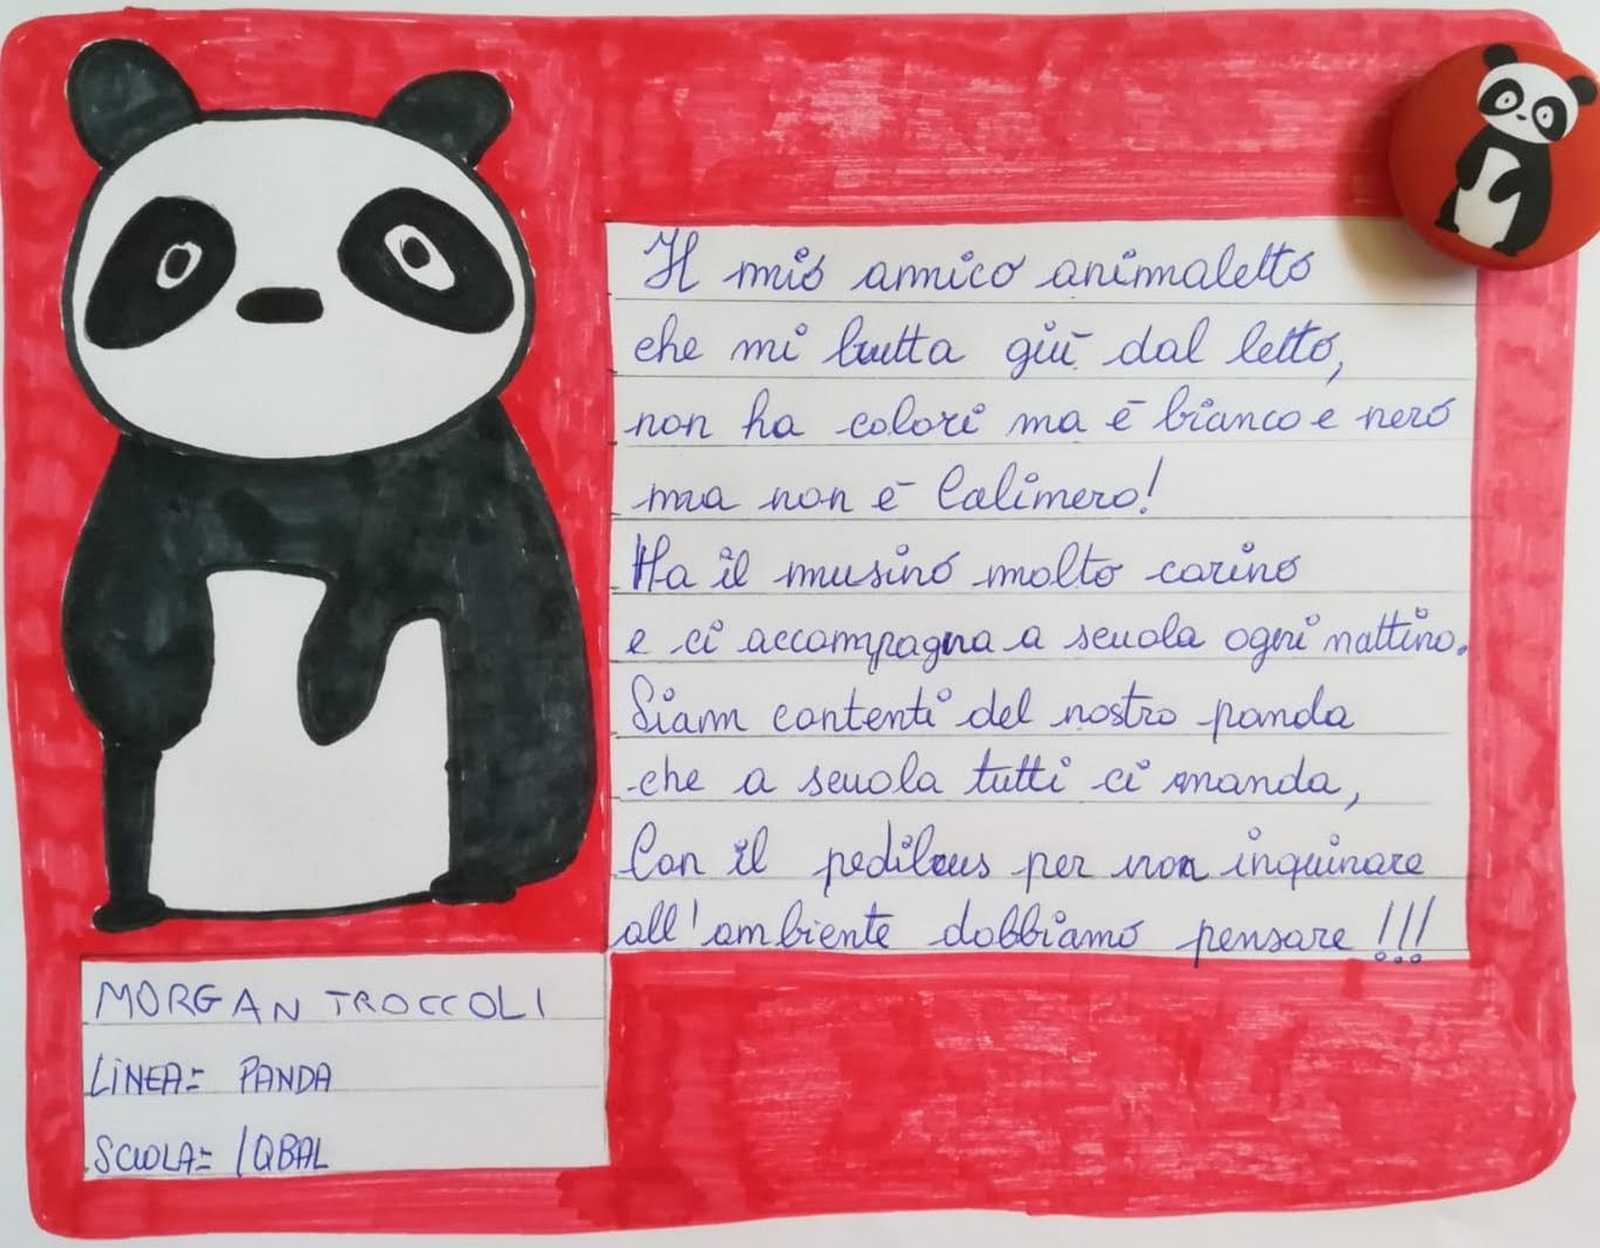 Il mio amico animaletto
che mi butta giù dal letto,
non ha colori ma è bianco e nero
ma non è Calimero!
Ha il musino molto carino
e ci accompagna a scuola ogni mattino.
Siam contenti del nostro panda
che a scuola tutti ci manda,
Con il pedibus per non inquinare
all'ambiente dobbiamo pensare!!!
MORGAN TROCCOLI
LINEA= PANDA
SCUOLA= IQBAL